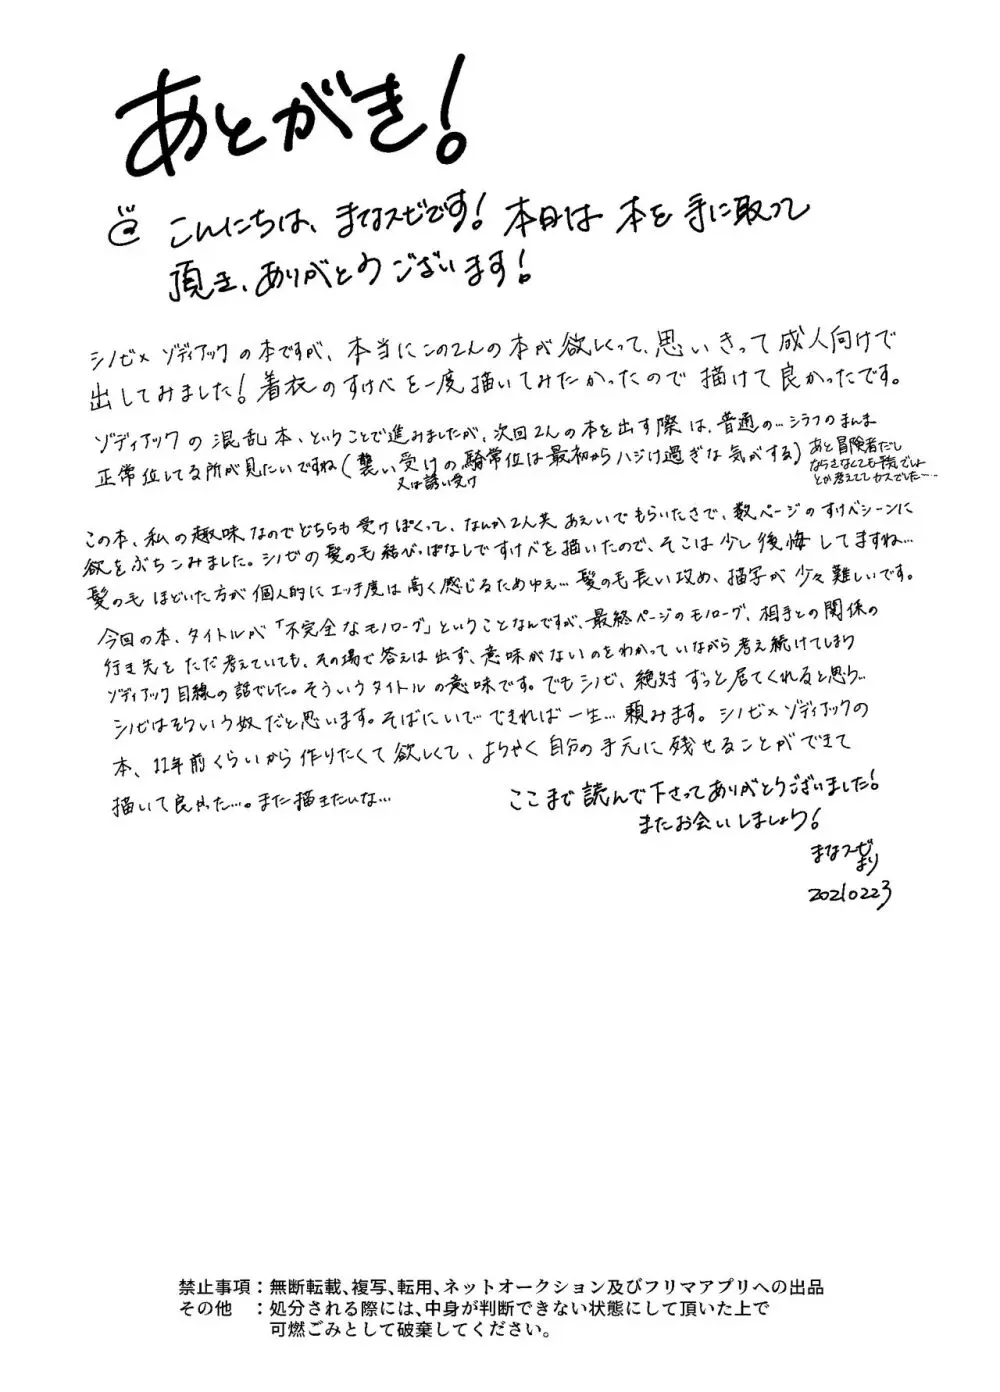 あとがき!
こんにちは、まなスピです! 本日は 本を 手に取って
頂き、ありがとうございます!
シノビ×ゾディアックの本ですが、本当にこの2人の本が欲しくって、思いきって成人向けで
出してみました!着衣のすけべを一度描いてみたかったので描けて良かったです。
ゾディアックの混乱本、ということで進みましたが、次回2人の本を出す際は、普通の…シラフのまんま
正常位してる所が見たいですね(襲い受けの騎常位は最初からハジけ過ぎな気がする)
又は誘い受け
あと冒険者だし
とか考えててカスでした…
この本、私の趣味なのでどちらも受けぽくって、なんか2人共あえいでもらいたさで、数ページのすけべシーンに
欲をぶちこみました。シノビの髪の毛結びっぱなしですけべを描いたので、そこは少し後悔してますね…
髪の毛ほどいた方が個人的にエッチ度は高く感じるためゆえ…髪の毛長い攻め、描写が少々難しいです。
今回の本、タイトルが「不完全なモノローグ」ということなんですが、最終ページのモノローグ、相手との関係の
行き先をただ考えていても、その場で答えは出ず、意味がないのをわかっていながら考え続けてしまう
ゾディアック目線の話でした。そういうタイトルの意味です。でもシノビ、絶対ずっと居てくれると思う…
シノビはそういう奴だと思います。そばにいて…できれば一生…頼みます。シノビ×ゾディアックの
本、11年前くらいから作りたくて欲しくて、ようやく自分の手元に残せることができて
描いて良かった…。また描きたいな…
ここまで読んで下さってありがとうございました!
またお会いしましょう!
まなスピ
より
20210223
禁止事項:無断転載、複写、転用、ネットオークション及びフリマアプリへの出品
その他 :処分される際には、中身が判断できない状態にして頂いた上で
可燃ごみとして破棄してください。